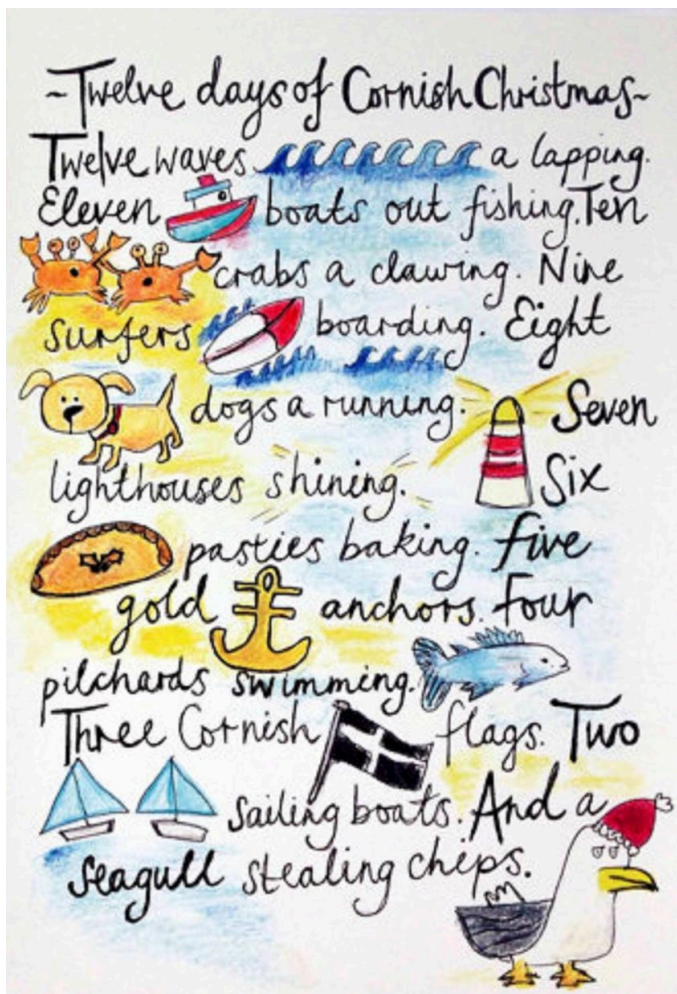 ~Twelve days of Cornish Christmas~
Twelve waves a lapping.
Eleven boats out fishing. Ten
crabs a clawing. Nine
surfers boarding. Eight
dogs a running. Seven
lighthouses shining. Six
pasties baking. Five
gold anchors. Four
pilchards swimming.
Three Cornish flags. Two
sailing boats. And a
seagull stealing chips.